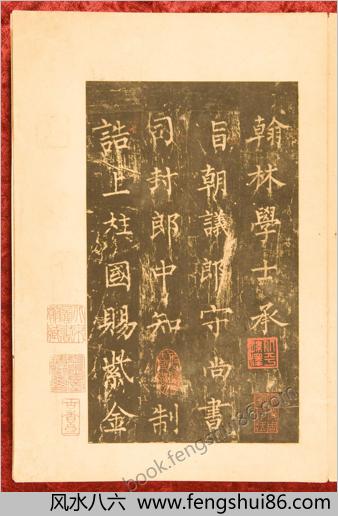 翰林學士承
旨朝議郎守尚書
司封郎中知 制
誥上柱國賜紫金
book.fengshui86.com
风水八六 www.fengshui86.com